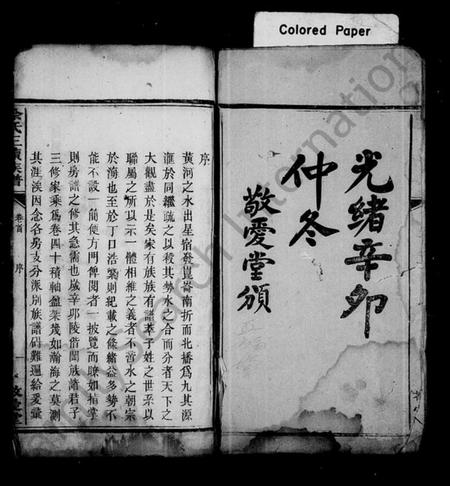 Colored Paper
光緒辛卯
仲冬
敬愛堂頒
序
黃河之水出星宿發崑崙南折而北播爲九其源
滙於同繼疏之以殺其勢水之合而分者天下之
大觀盡於是矣宋有族族有譜萃子姓之世系以
聯屬之所以示一體相維之義者不啻水之朝宗
於海也至於丁口浩繁則紀載之條緒益多勢不
能不設一簡便方門俾閱者一披覽而瞭如指掌
則房譜之修其急需也歲辛卯陵偕闔族諸君子
三修家乘爲卷四十積軸盈箱幾如瀚海之莫測
其涯涘因念各房支分派別族譜碼難遍給爰彙
余氏三續族譜
卷首
序
一
敬愛堂